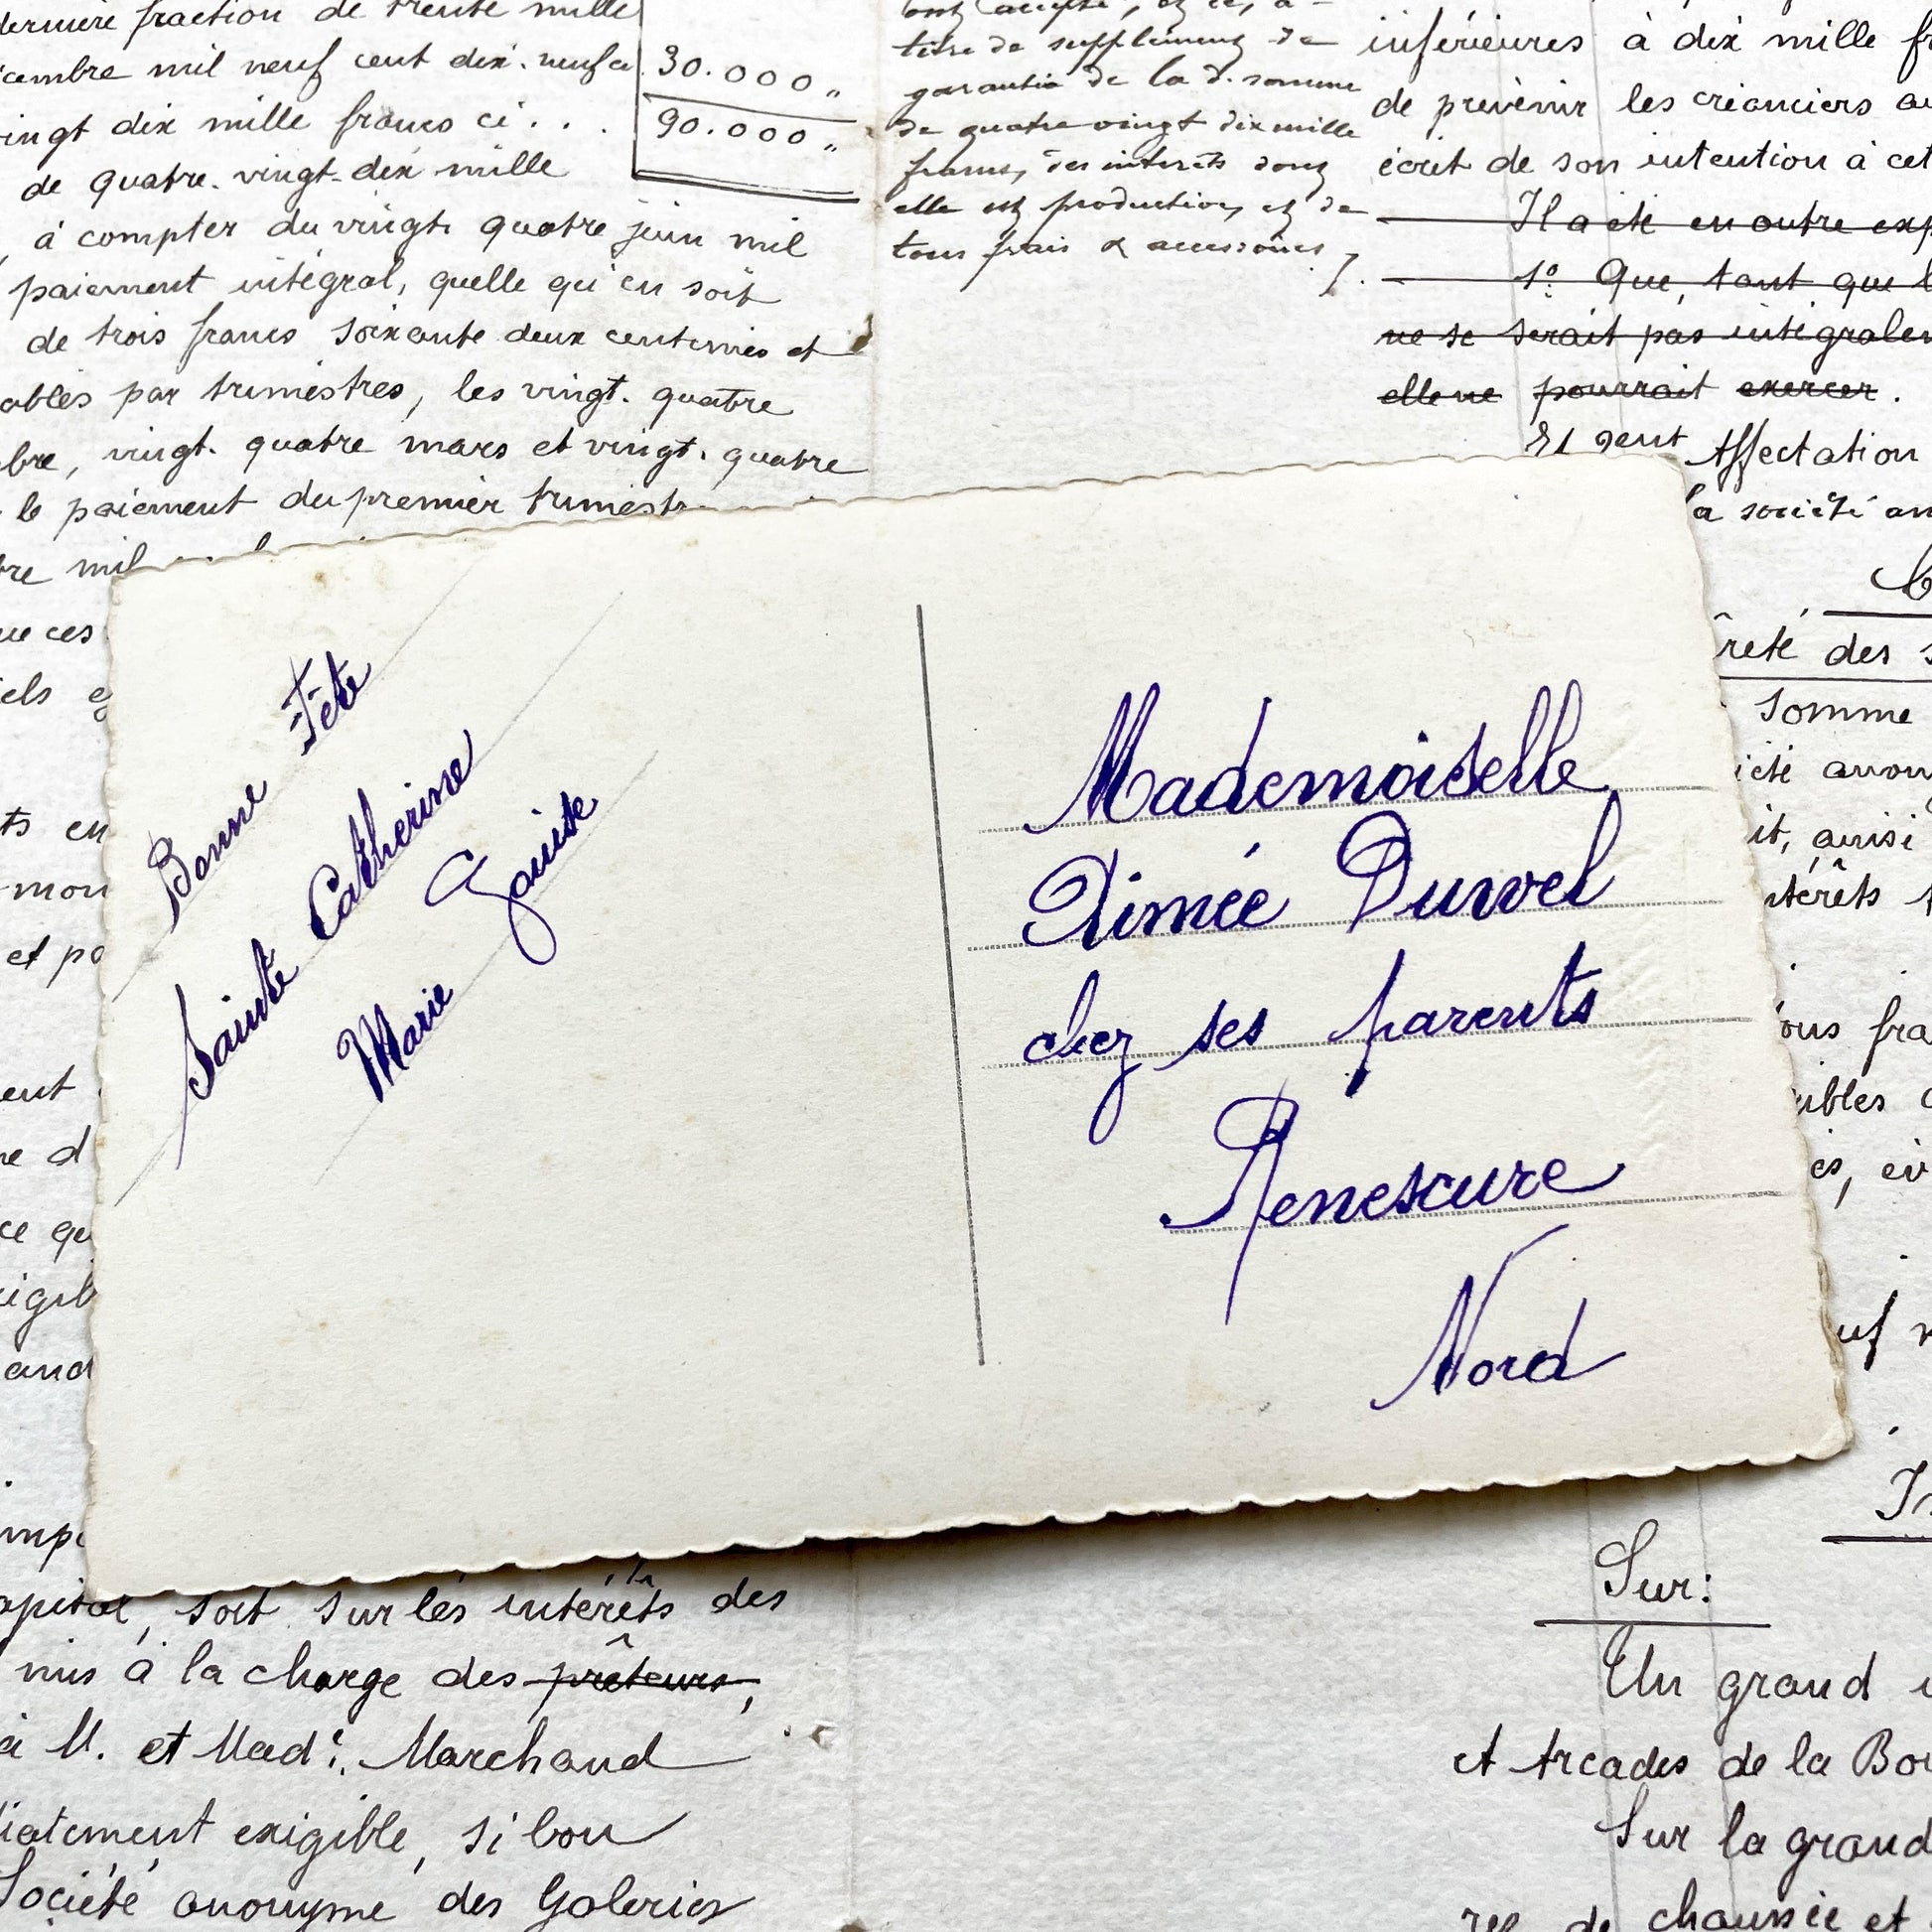 dernière fraction de trente mille
cembre mil neuf cent dix-neuf ci 30.000 "
vingt dix mille francs ci . . . 90.000 "
de quatre-vingt-dix mille
à compter du vingt quatre juin mil
paiement intégral, quelle qu'en soit
de trois francs soixante deux centimes et
ables par trimestres, les vingt-quatre
bre, vingt-quatre mars et vingt-quatre
le paiement du premier trimestr
bre mil
ue ces
iels e
ts en
mon
et po
ent
ne d
ce qu
xigib
and
impo
apital, soit sur les intérêts des
mis à la charge des prêteurs,
à M. et Made. Marchand
diatement exigible, si bon
Société anonyme des Galeries
titre de supplément de
garantie de la d. somme
de quatre vingt dix mille
francs, des intérêts dont
elle est production, et de
tous frais & accessoires
inférieures à dix mille fr
de prévenir les créanciers au
écrit de son intention à cet
Il a été en outre exp
1º Que, tant que l
ne se serait pas intégralem
elle ne pourrait exercer.
Affectation
la société an
reté des s
somme
iété anon
it, ainsi
ntérêts
ous fra
ibles
es, év
uf
Sur:
Un grand
et Arcades de la Bou
Sur la grand
rez de chaussée et
Bonne Fête
Sainte Catherine
Marie
Mademoiselle
Aimée Duwel
chez ses parents
Renescure
Nord